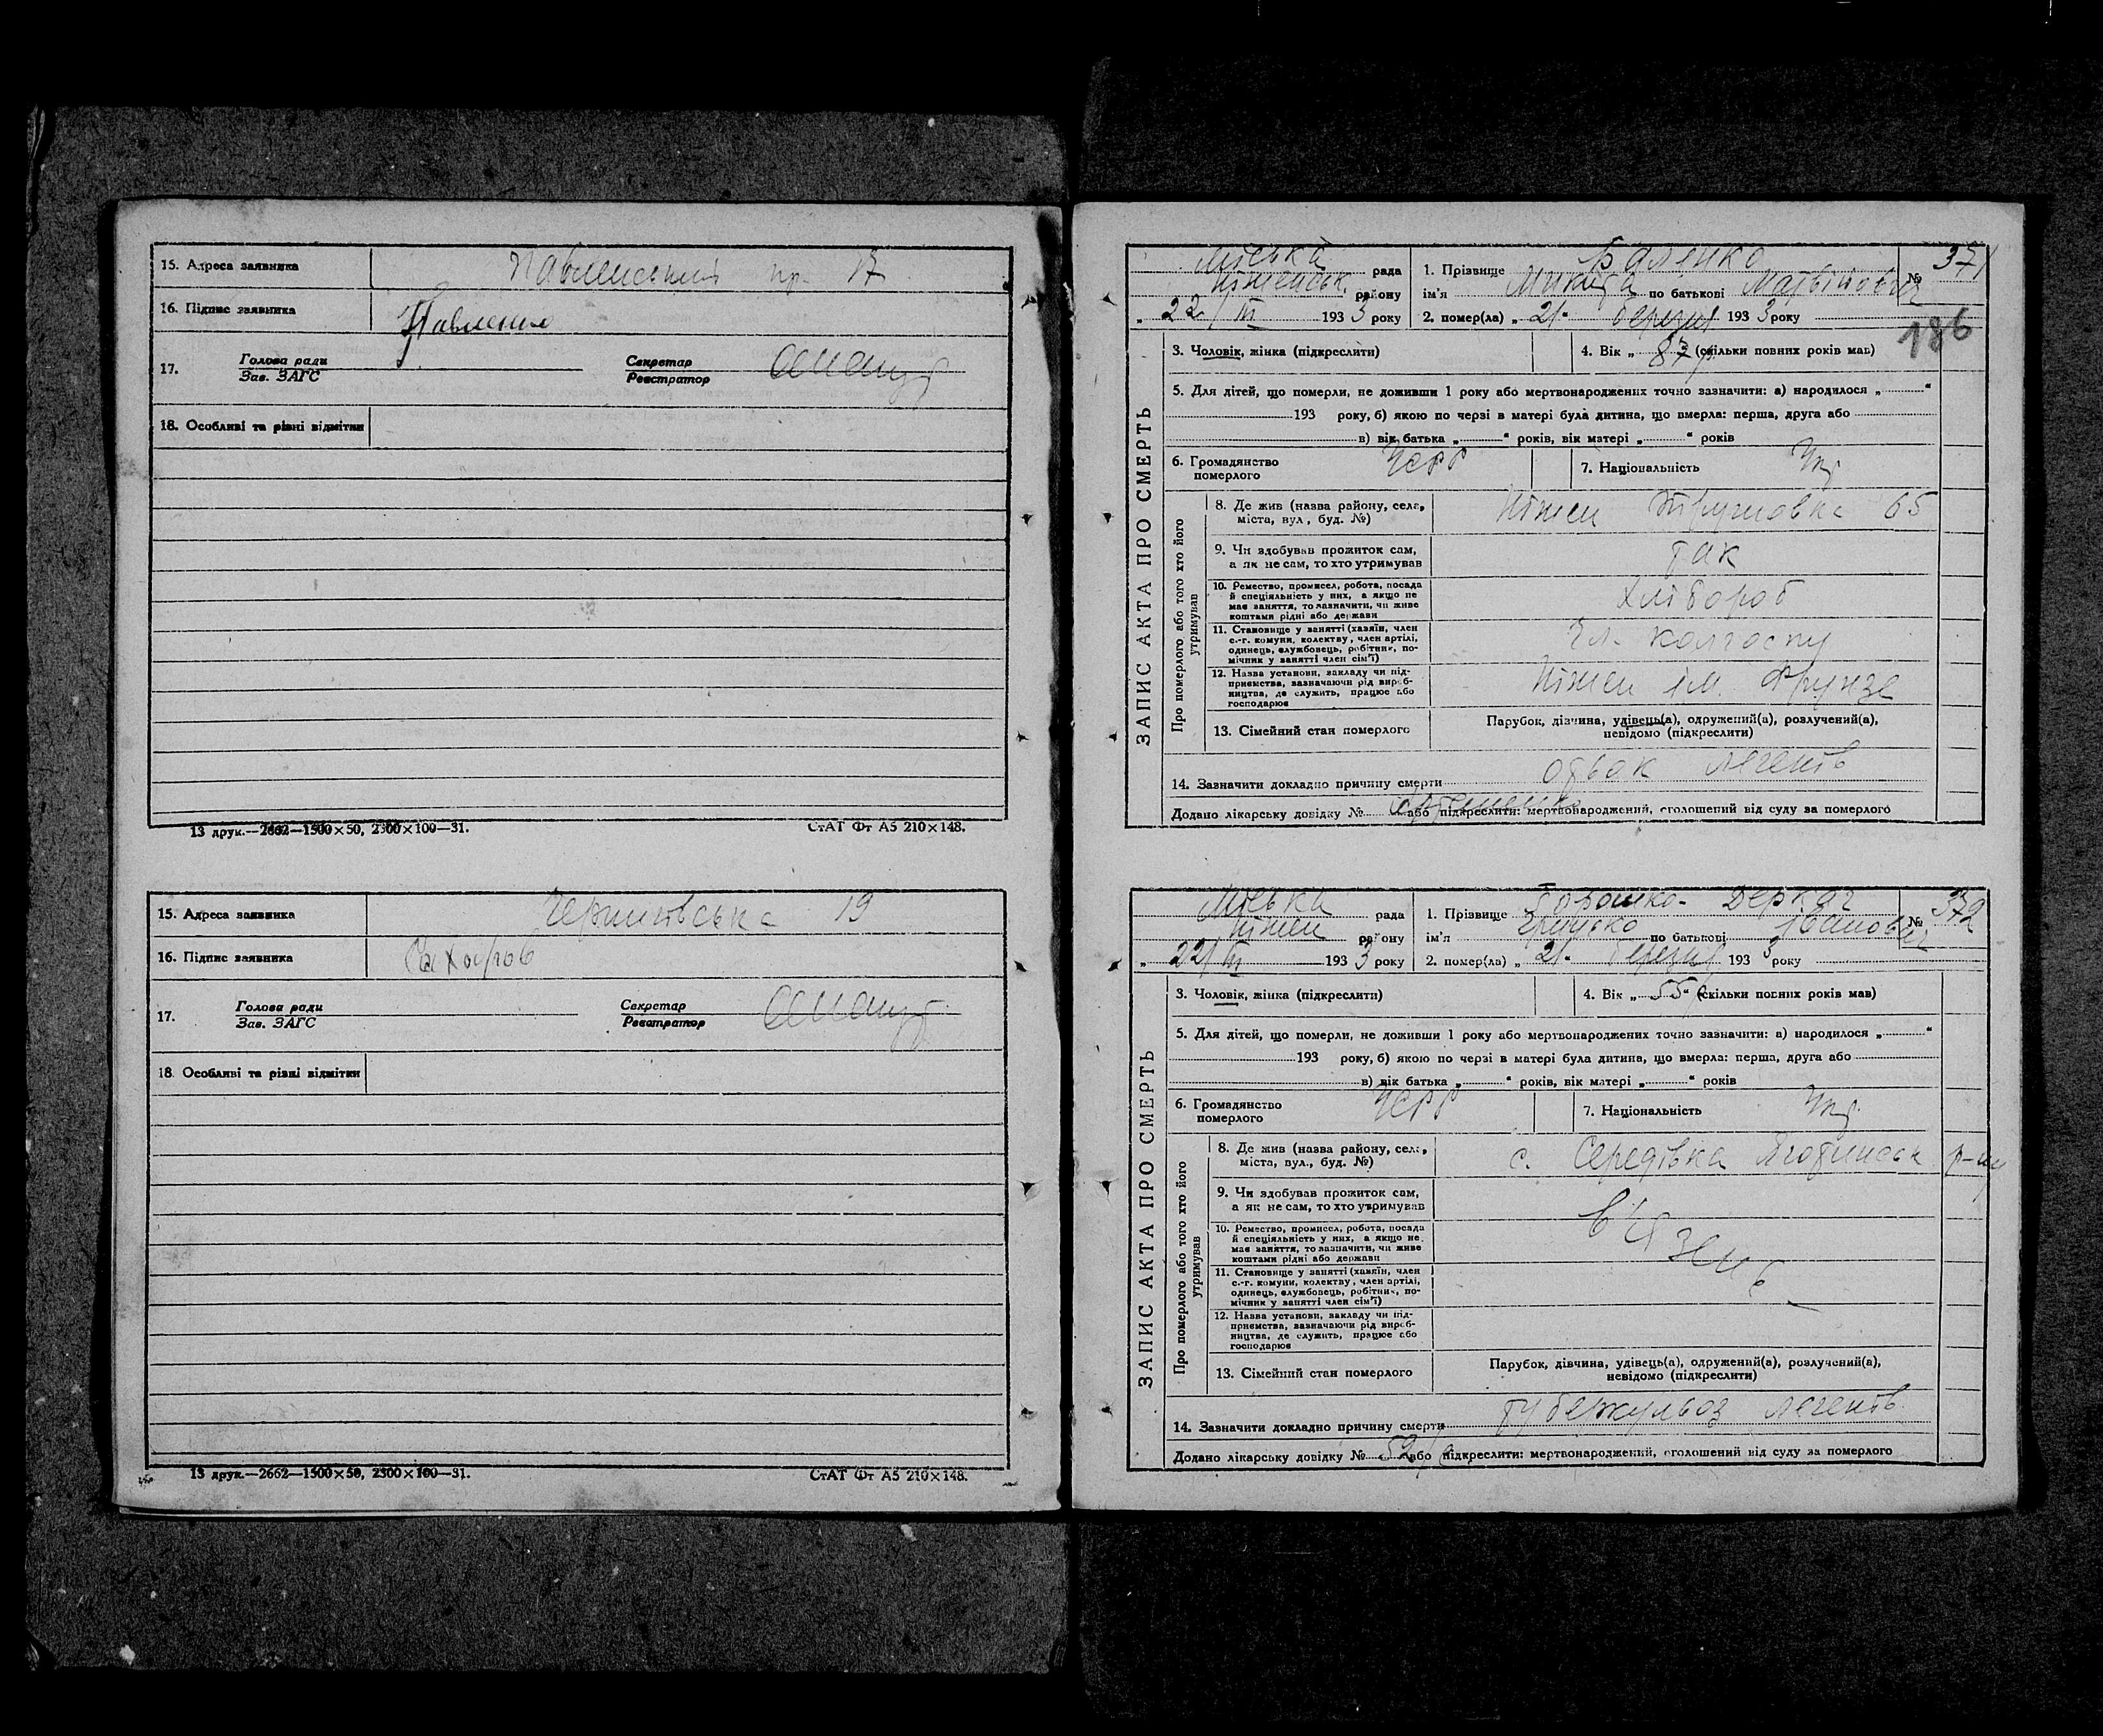 15. Адреса заявника
пр. 17
16. Підпис заявника
Павленко
17. Голова ради
Зав. ЗАГС
Секретар
Реєстратор
18. Особливі та різні відмітки
13 друк.—2662—1500×50, 2300×100—31.
СтАТ Фт А5 210×148.
15. Адреса заявника Чернигівська 19
16. Підпис заявника
17. Голова ради
Зав. ЗАГС
Секретар
Реєстратор
18. Особливі та різні відмітки
13 друк.—2662—1500×50, 2300×100—31.
СтАТ Фт А5 210×148.
ЗАПИС АКТА ПРО СМЕРТЬ
Міська рада
Ніженськ. району
„ 22/III 1933 року
1. Прізвище Баленко № 371
ім'я Микита по батькові Матвійович
2. помер(ла) „ 21 " березня 1933 року
186
3. Чоловік, жінка (підкреслити)
4. Вік „ 87 " (скільки повних років мав)
5. Для дітей, що померли, не доживши 1 року або мертвонароджених точно зазначити: а) народилося „ "
193 року, б) якою по черзі в матері була дитина, що вмерла: перша, друга або
в) вік батька „ " років, вік матері „ " років
6. Громадянство померлого УСРР
7. Національність Укр
Про померлого або того хто його утримував
8. Де жив (назва району, села, міста, вул., буд. №) Ніжен 65
9. Чи здобував прожиток сам, а як не сам, то хто утримував так
10. Ремество, промисел, робота, посада й спеціяльність у них, а якщо не має заняття, то зазначити, чи живе коштами рідні або держави хлібороб
11. Становище у занятті (хазяїн, член с.-г. комуни, колективу, член артілі, одинець, службовець, робітник, помічник у занятті член сім'ї) чл. колгоспу
12. Назва установи, закладу чи підприємства, зазначаючи рід виробництва, де служить, працює або господарює Ніжен ім. Фрунзе
13. Сімейний стан померлого Парубок, дівчина, удівець(а), одружений(а), розлучений(а), невідомо (підкреслити)
14. Зазначити докладно причину смерти отьок легенів
Додано лікарську довідку № або підкреслити: мертвонароджений, оголошений від суду за померлого
ЗАПИС АКТА ПРО СМЕРТЬ
Міська рада
Ніжен району
„ 22/III 1933 року
1. Прізвище Деркач № 372
ім'я Грицько по батькові Іванович
2. помер(ла) „ 21 " березня 1933 року
3. Чоловік, жінка (підкреслити)
4. Вік „ 55 " (скільки повних років мав)
5. Для дітей, що померли, не доживши 1 року або мертвонароджених точно зазначити: а) народилося „ "
193 року, б) якою по черзі в матері була дитина, що вмерла: перша, друга або
в) вік батька „ " років, вік матері „ " років
6. Громадянство померлого УСРР
7. Національність Укр.
Про померлого або того хто його утримував
8. Де жив (назва району, села, міста, вул., буд. №) с. Середівка Яготинськ р-ну
9. Чи здобував прожиток сам, а як не сам, то хто утримував
в'язень
10. Ремество, промисел, робота, посада й спеціяльність у них, а якщо не має заняття, то зазначити, чи живе коштами рідні або держави
11. Становище у занятті (хазяїн, член с.-г. комуни, колективу, член артілі, одинець, службовець, робітник, помічник у занятті член сім'ї)
12. Назва установи, закладу чи підприємства, зазначаючи рід виробництва, де служить, працює або господарює
13. Сімейний стан померлого Парубок, дівчина, удівець(а), одружений(а), розлучений(а), невідомо (підкреслити)
14. Зазначити докладно причину смерти туберкульоз легенів
Додано лікарську довідку № 52 або підкреслити: мертвонароджений, оголошений від суду за померлого